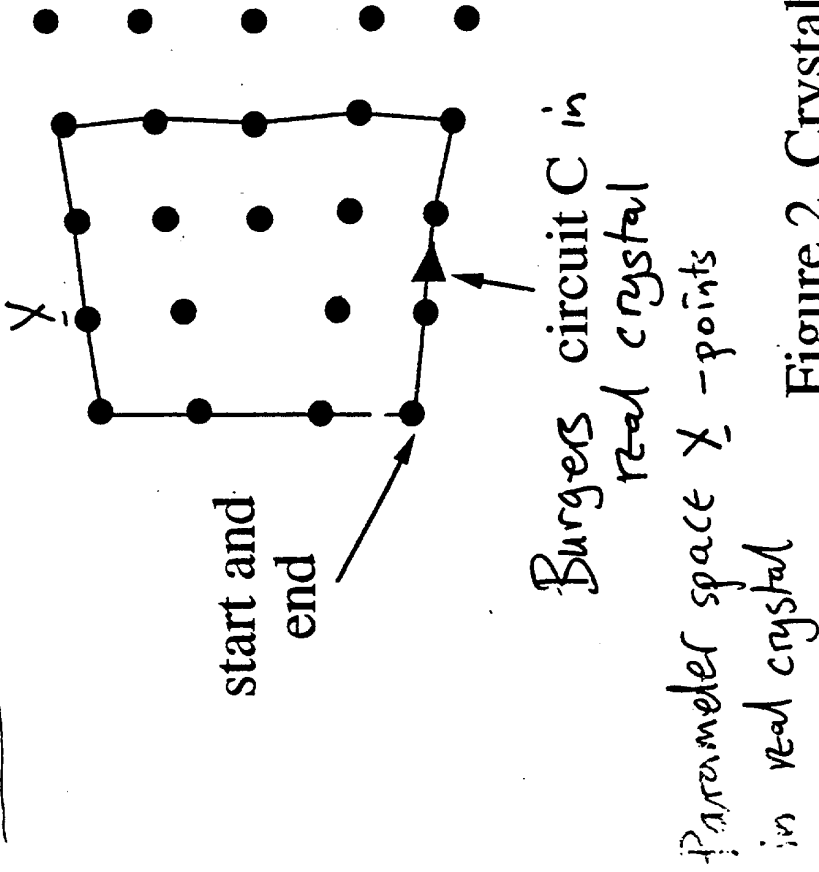 X
start and
end
Burgers circuit C in
real crystal
Parameter space X - points
in real crystal
Figure 2 Crystal